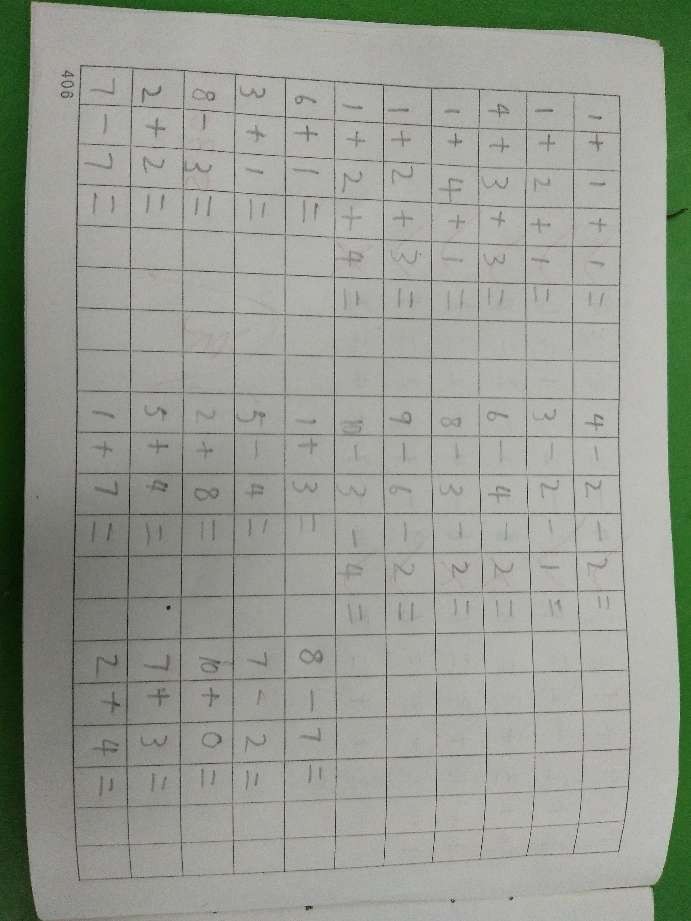 1+1+1= 4-2-2=
1+2+1= 3-2-1=
4+3+3= 6-4-2=
1+4+1= 8-3-2=
1+2+3= 9-6-2=
1+2+4= 10-3-4=
6+1= 1+3= 8-7=
3+1= 5-4= 7-2=
8-3= 2+8= 10+0=
2+2= 5+4= 7+3=
7-7= 1+7= 2+4=
406